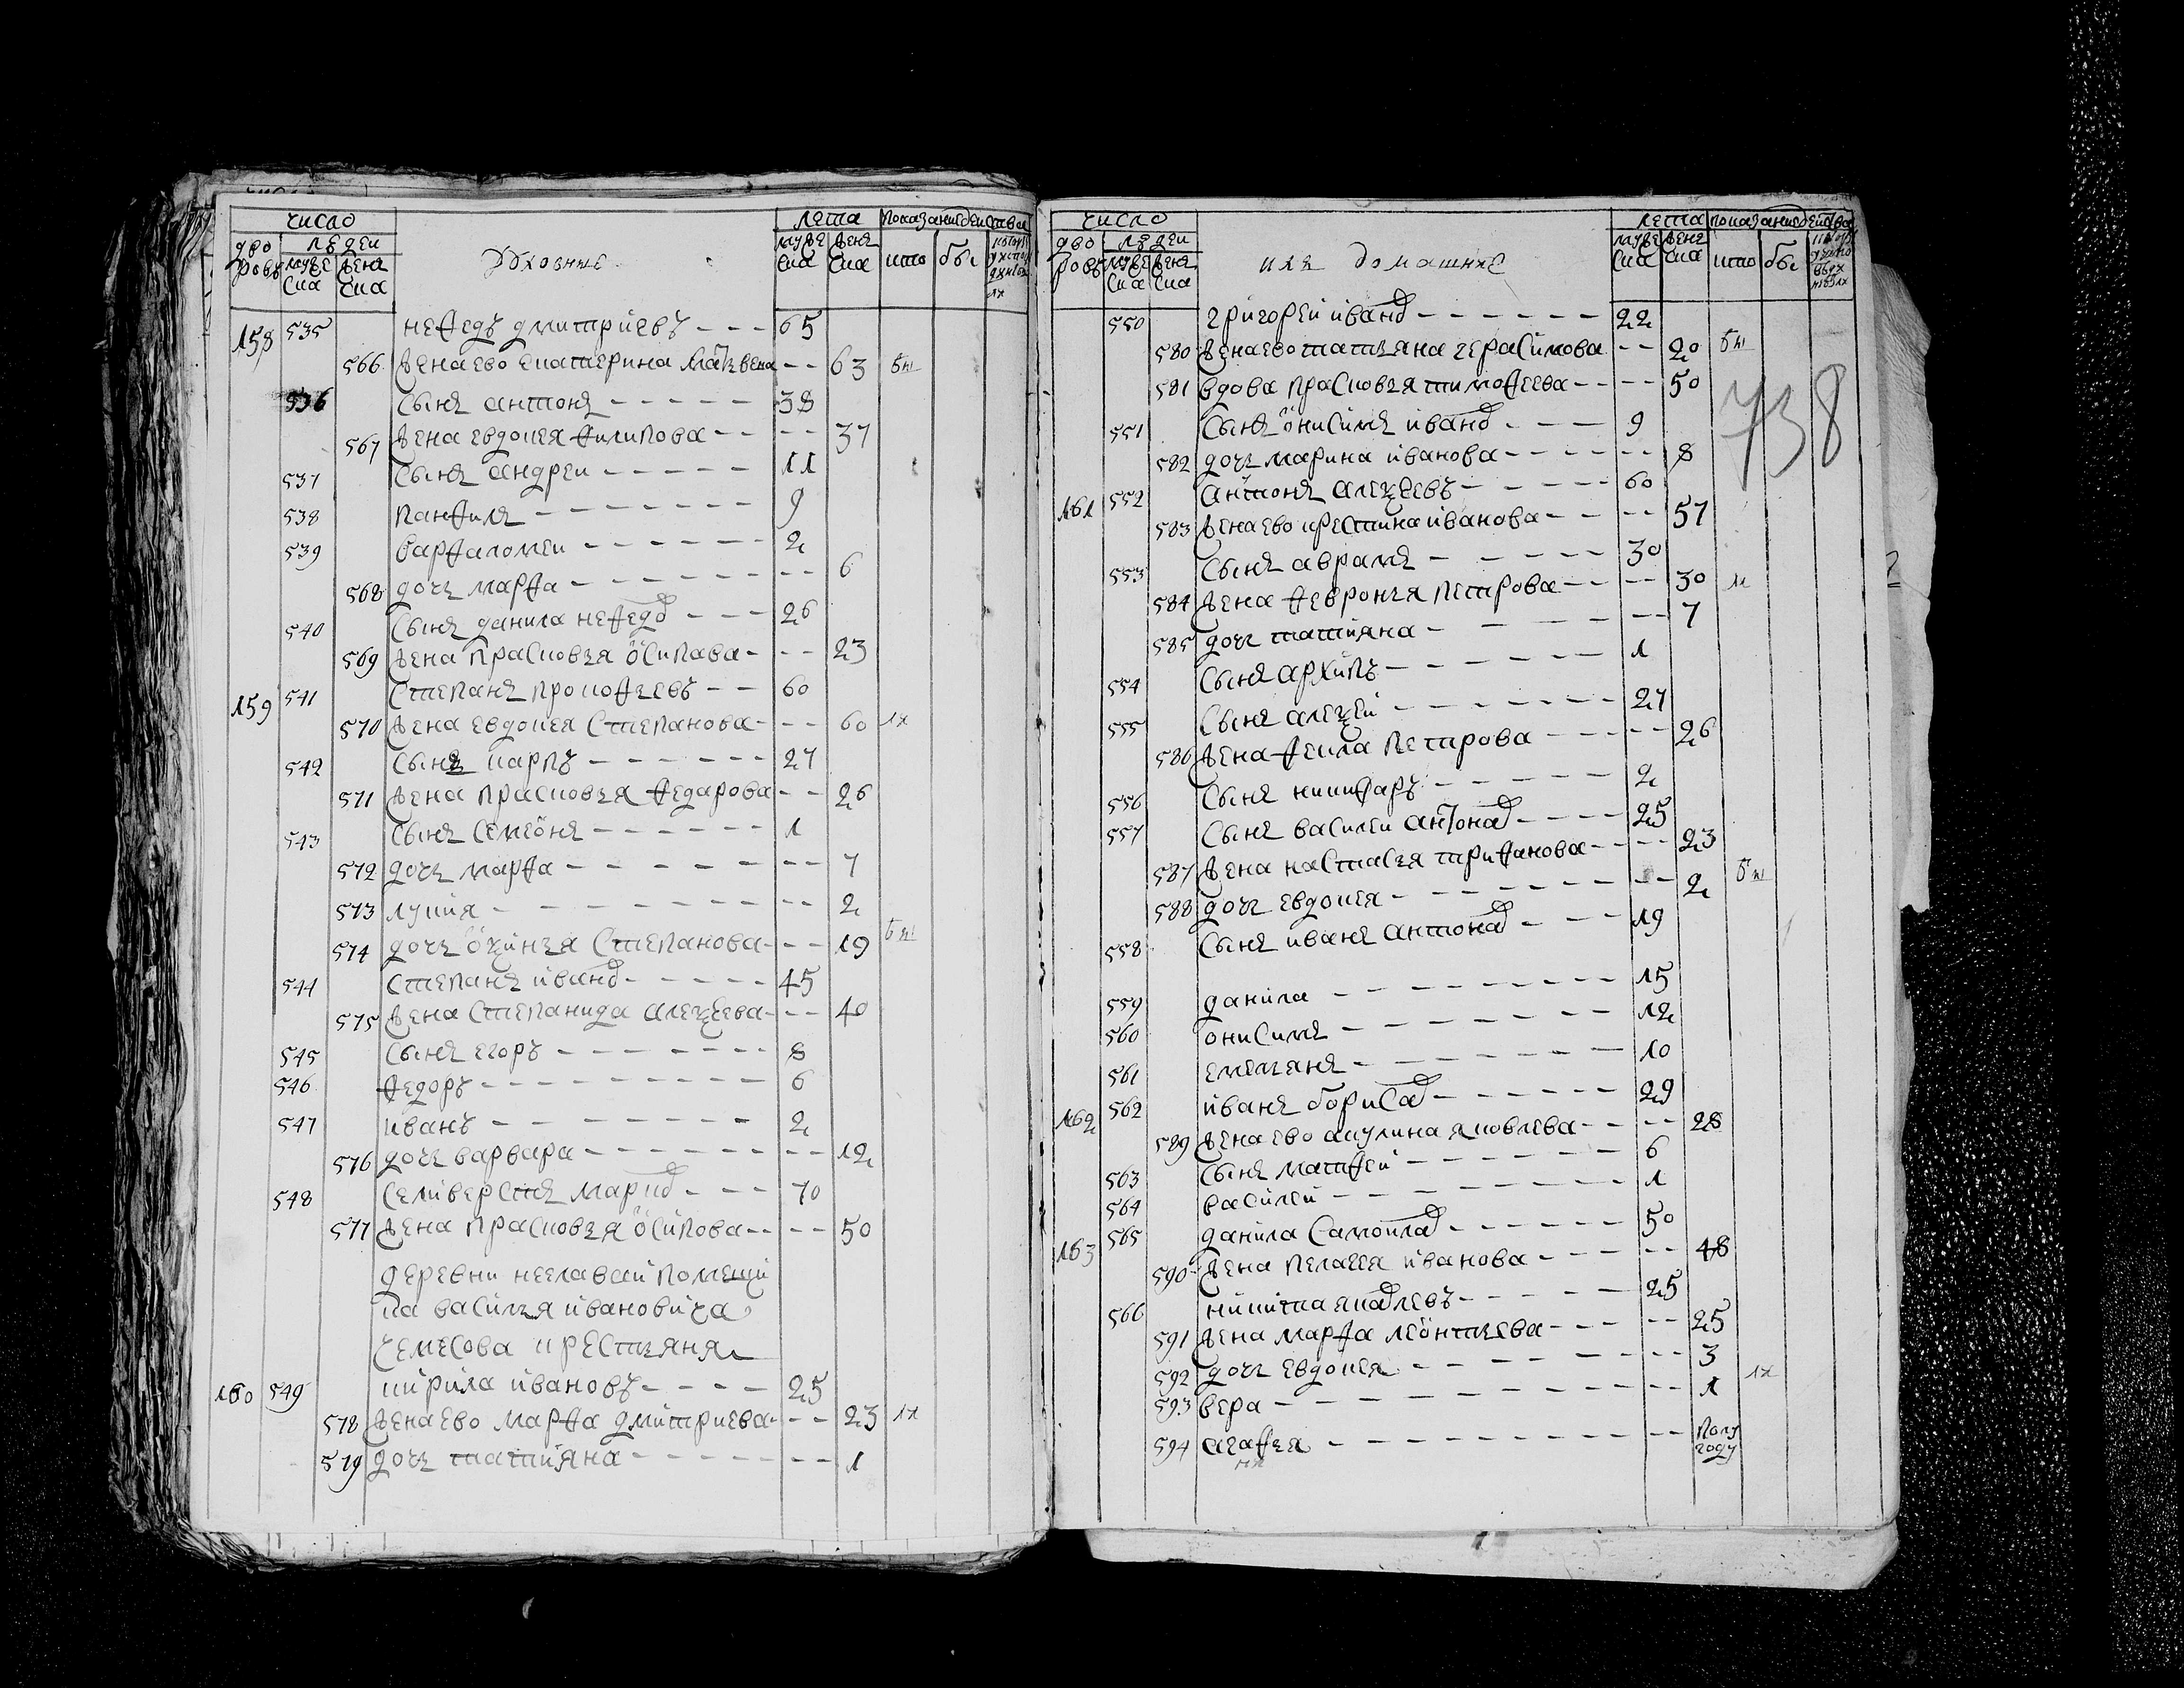 число
лета
показание действа
дво
ровъ
людеи
муже
ска
женс
ска
Духовныя
муже
ска
женс
ска
кто
обы
158 535 нефедъ дмитриевъ - - - 65
566 жена ево екатерина Матвева - - 63 бы
536 Сынъ антонъ - - - - - 38
567 жена евдокея филипова - - - - 37
537 Сынъ андреи - - - - - 11
538 панфилъ - - - - - - 9
539 варфаломеи - - - - - - 2
568 дочь марфа - - - - - - - - 6
540 Сынъ данила нефедов - - - 26
569 жена прасковья осипава - - - 23
159 541 Степанъ прокофьевъ - - 60
570 жена евдокея Степанова - - - 60 их
542 Сынъ карпъ - - - - - - 27
571 жена прасковья федарова - - 26
543 Сынъ Семеонъ - - - - - - 1
572 дочь марфа - - - - - - - - 7
573 лукия - - - - - - - - - 2
574 дочь оксинья Степанова - - - 19 бы
544 Степанъ иванов - - - - - 45
575 жена Степанида алексеева - - - 40
545 Сынъ егоръ - - - - - - - 8
546 федоръ - - - - - - - - 6
547 иванъ - - - - - - - 2
576 дочь варвара - - - - - - - - 12
548 Селиверстъ марков - - - 70
577 жена прасковья осипова - - - - 50
деревни неелаваи помещи
ка василья ивановича
чемесова крестьяня
160 549 кирила ивановъ - - - - 25
578 жена ево марфа дмитриева - - - 23 их
579 дочь татияна - - - - - - - - 1
число
лета
показание действа
дво
ровъ
людеи
муже
ска
женс
ска
ихъ домашние
муже
ска
женс
ска
кто
обы
550 григореи иванов - - - - - - 22
580 жена ево татьяна герасимова - - 20 бы
581 вдова прасковья тимофеева - - - - 50
738
551 Сынъ онисимъ иванов - - - - 9
582 дочь марина иванова - - - - - - 8
161 552 антонъ алексеевъ - - - - - 60
583 жена ево крестина иванова - - - - 57
553 Сынъ аврамъ - - - - - 30
584 жена февронья петрова - - - - 30
585 дочь татияна - - - - - - 7
554 Сынъ архипъ - - - - - - 1
555 Сынъ алексеи - - - - - - 27
586 жена фекла петрова - - - - - 26
556 Сынъ никифаръ - - - - - 2
557 Сынъ василеи антонов - - - - 25
587 жена настасья трифанова - - - - 23 бы
588 дочь евдокея - - - - - - - - 2
558 Сынъ иванъ антонов - - - 19
559 данила - - - - - - - - 15
560 онисимъ - - - - - - - 12
561 емельянъ - - - - - - - 10
162 562 иванъ борисов - - - - - 29
589 жена ево акулина яковлева - - - - 28
563 Сынъ матфеи - - - - - - 6
564 василеи - - - - - - - 1
163 565 данила Самоилов - - - - - - 50
590 жена пелагея иванова - - - - - 48
566 никита яковлевъ - - - - - 25
591 жена марфа леонтьева - - - - - 25
592 дочь евдокея - - - - - - - 3 их
593 вера - - - - - - - - - 1
594 агафья - - - - - - - - - полу
году